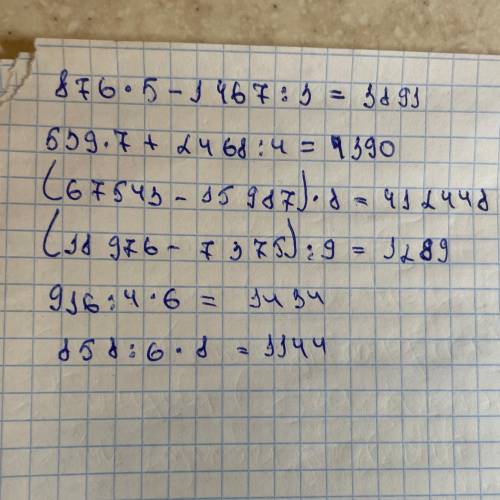 876·5-1467:3 = 3891
539·7+2468:4 = 4390
(67543-15987)·8 = 412448
(18976-7375):9 = 1289
916:4·6 = 1434
858:6·8 = 1144